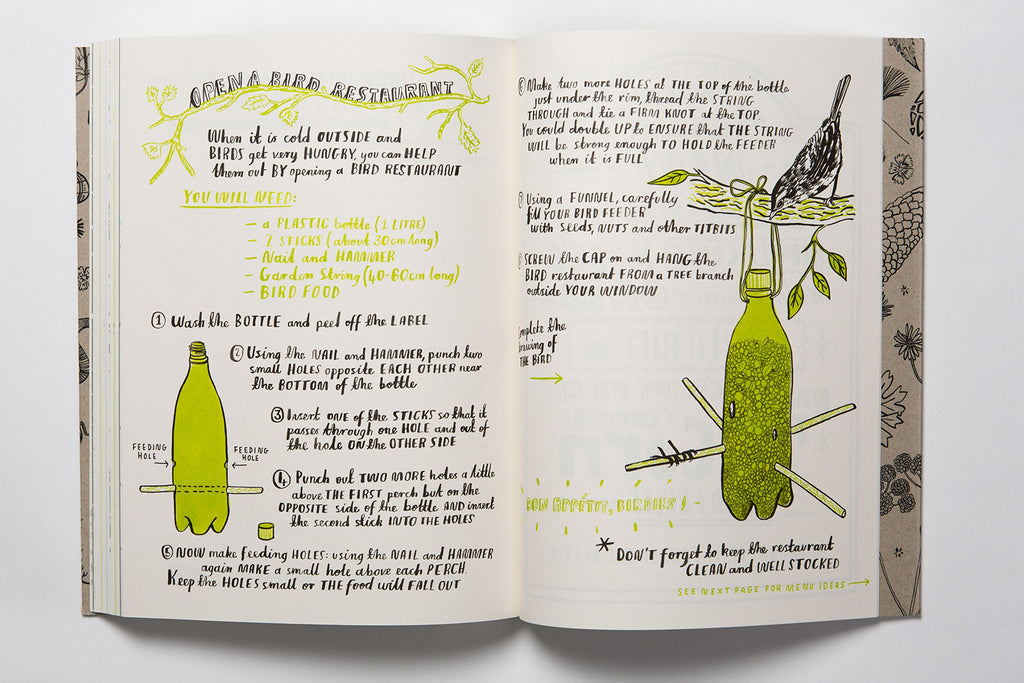 OPEN A BIRD RESTAURANT
When it is cold OUTSIDE and
BIRDS get very HUNGRY, you can HELP
them out BY opening a BIRD RESTAURANT
YOU WILL NEED:
– a PLASTIC bottle (1 LITRE)
– 2 STICKS (about 30cm long)
– Nail and HAMMER
– Garden String (40-60cm long)
– BIRD FOOD
① Wash the BOTTLE and peel off the LABEL
② Using the NAIL and HAMMER, punch two
small HOLES opposite EACH OTHER near
the BOTTOM of the bottle
③ Insert ONE of the STICKS so that it
passes through one HOLE and out of
the hole ON the OTHER SIDE
FEEDING
HOLE
FEEDING
HOLE
④ Punch out TWO MORE holes a little
above THE FIRST perch but on the
OPPOSITE side of the bottle AND insert
the second stick INTO THE HOLES
⑤ NOW make feeding HOLES: using the NAIL and HAMMER
again MAKE a small hole above each PERCH.
Keep the HOLES small or THE food will FALL OUT
Make two more HOLES at THE TOP of the bottle
just under the rim, thread the STRING
THROUGH and tie a FIRM KNOT at the TOP.
You could double UP to ENSURE that THE STRING
WILL be strong enough TO HOLD the FEEDER
when it is FULL
Using a FUNNEL, carefully
fill YOUR BIRD FEEDER
with Seeds, NUTS and other TITBITS
SCREW the CAP on and HANG the
BIRD restaurant FROM a TREE branch
outside YOUR WINDOW
the
of
THE BIRD
APPÉTIT, BIRDIES! –
* DON'T forget to keep the restaurant
CLEAN and WELL STOCKED
SEE NEXT PAGE FOR MENU IDEAS →